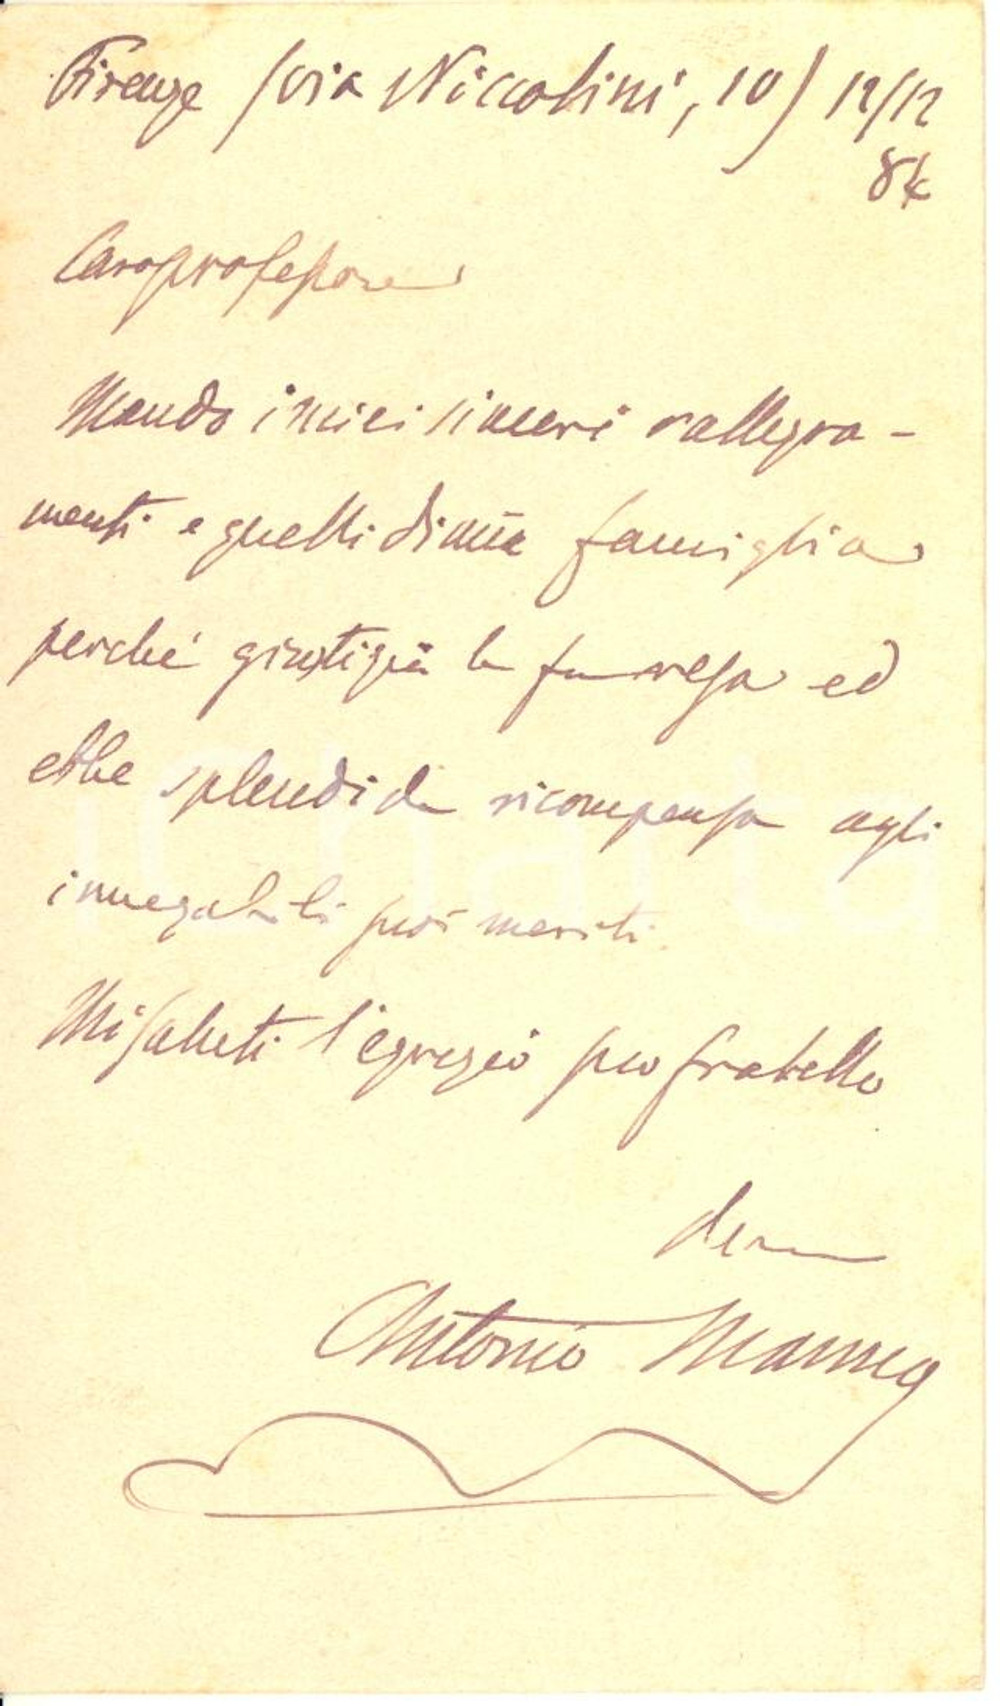 Firenze (via Niccolini, 10) 12/12
84
Caro professore
Mando i miei sinceri rallegra-
menti e quelli di mia famiglia
perché giustizia le fu resa ed
ebbe splendida ricompensa agli
innegabili suoi meriti.
Mi saluti l'egregio suo fratello
Antonio